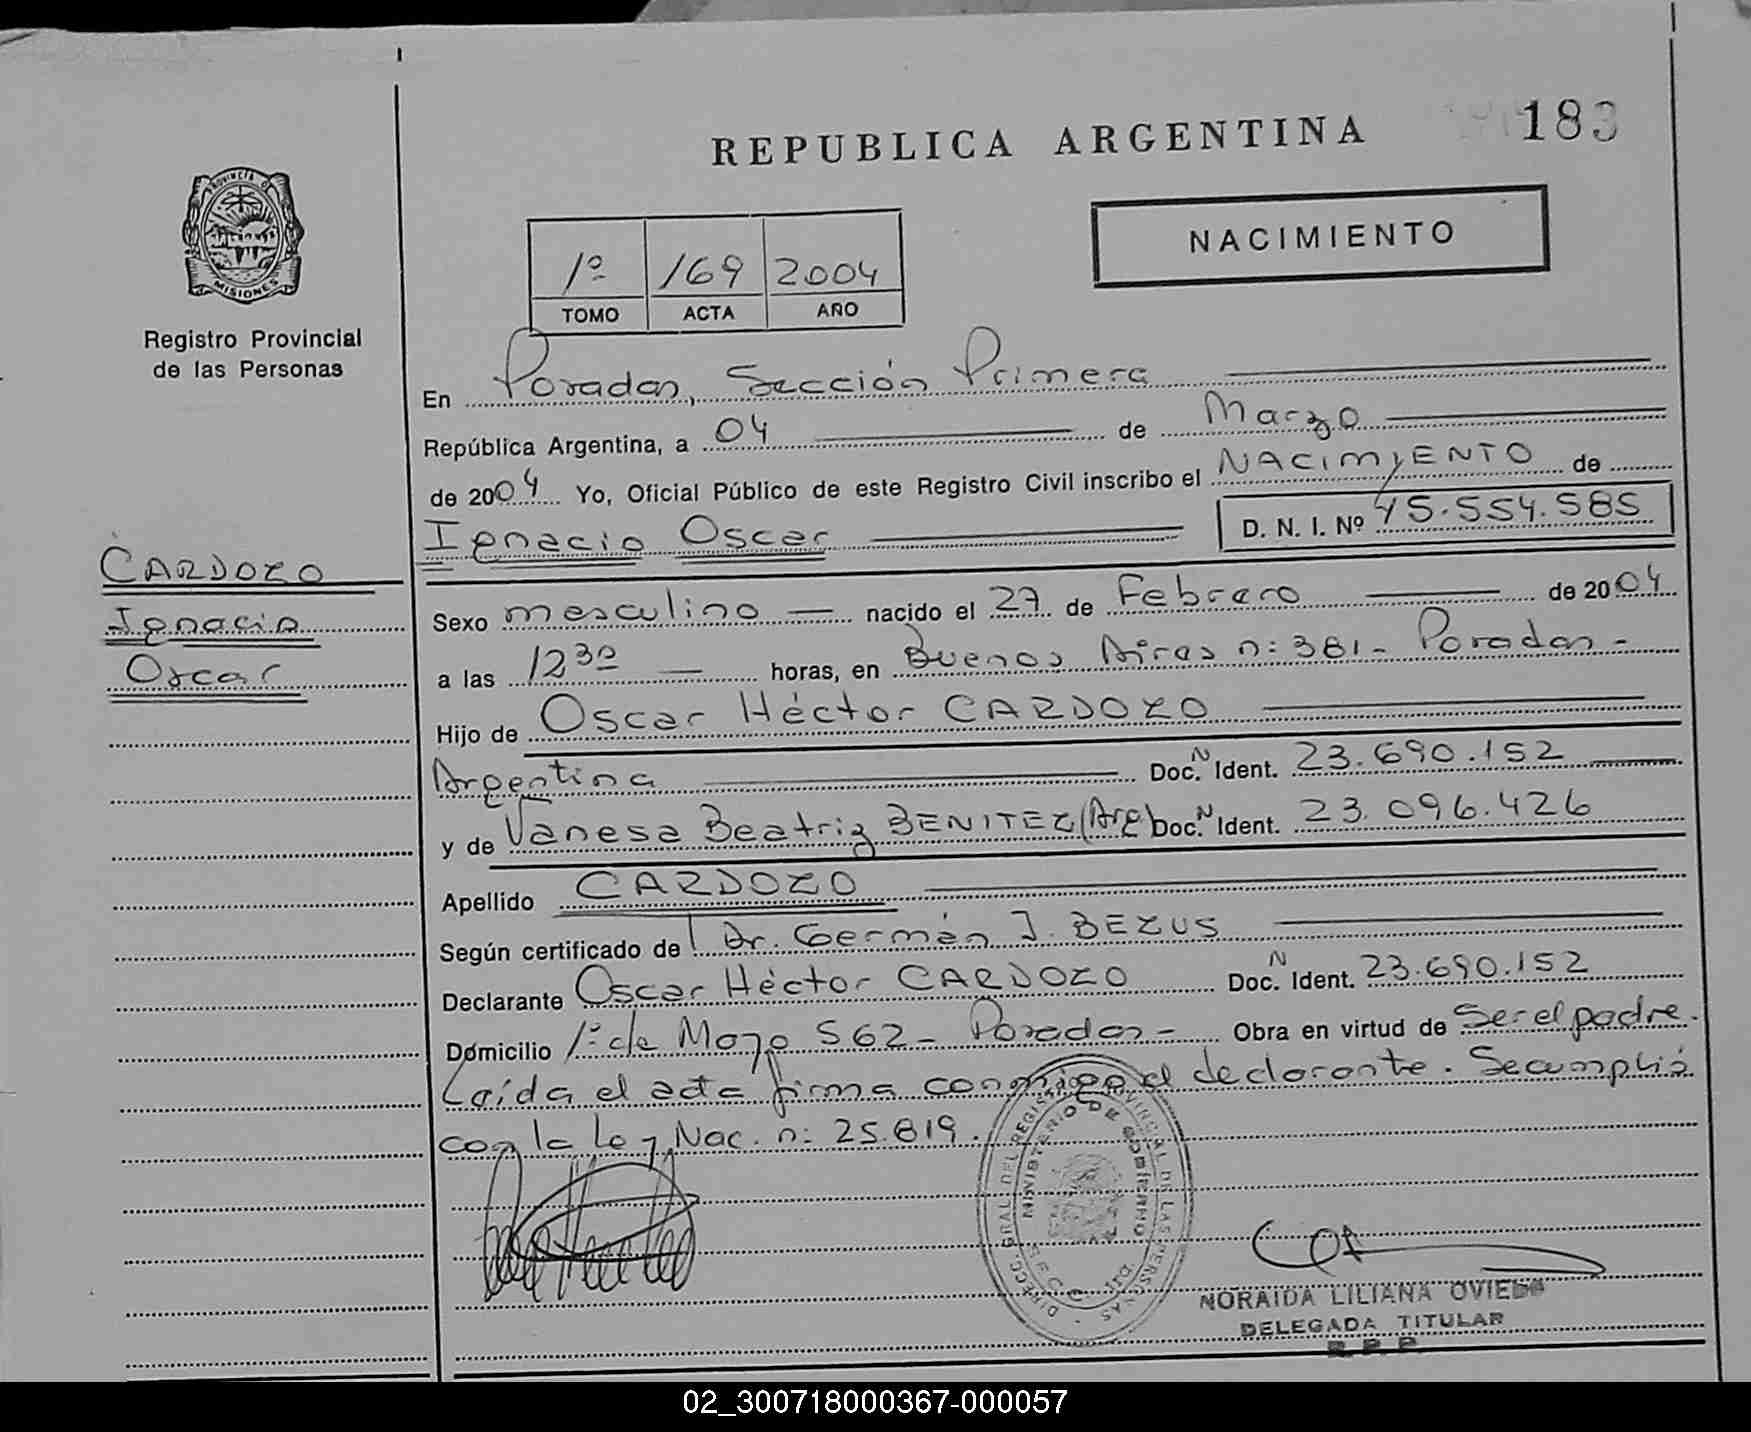 REPUBLICA ARGENTINA
183
NACIMIENTO
1º 169 2004
TOMO ACTA AÑO
PROVINCIA DE
MISIONES
Registro Provincial
de las Personas
En Posadas, Sección Primera
República Argentina, a 04 de Marzo
de 2004 Yo, Oficial Público de este Registro Civil inscribo el NACIMIENTO de
Ignacio Oscar D. N. I. Nº 45.554.585
CARDOZO
Ignacio
Oscar
Sexo masculino nacido el 27 de Febrero de 2004
a las 12 30 horas, en Buenos Aires n: 381 - Posadas -
Hijo de Oscar Héctor CARDOZO
Argentina Doc. N Ident. 23.690.152
y de Vanesa Beatriz BENITEZ (Arg) Doc. N Ident. 23.096.426
Apellido CARDOZO
Según certificado de Dr. Germán J. BEZUS
Declarante Oscar Héctor CARDOZO Doc. N Ident. 23.690.152
Domicilio 1º de Mayo 562 - Posadas - Obra en virtud de Ser el padre.
Leída el acta firma conmigo el declarante. Se cumplió
con la Ley Nac. n: 25.819.
DIRECC. GRAL DEL REGISTRO PROVINCIAL DE LAS PERSONAS
MINISTERIO DE GOBIERNO
NORAIDA LILIANA OVIEDO
DELEGADA TITULAR
R. P. P.
02_300718000367-000057